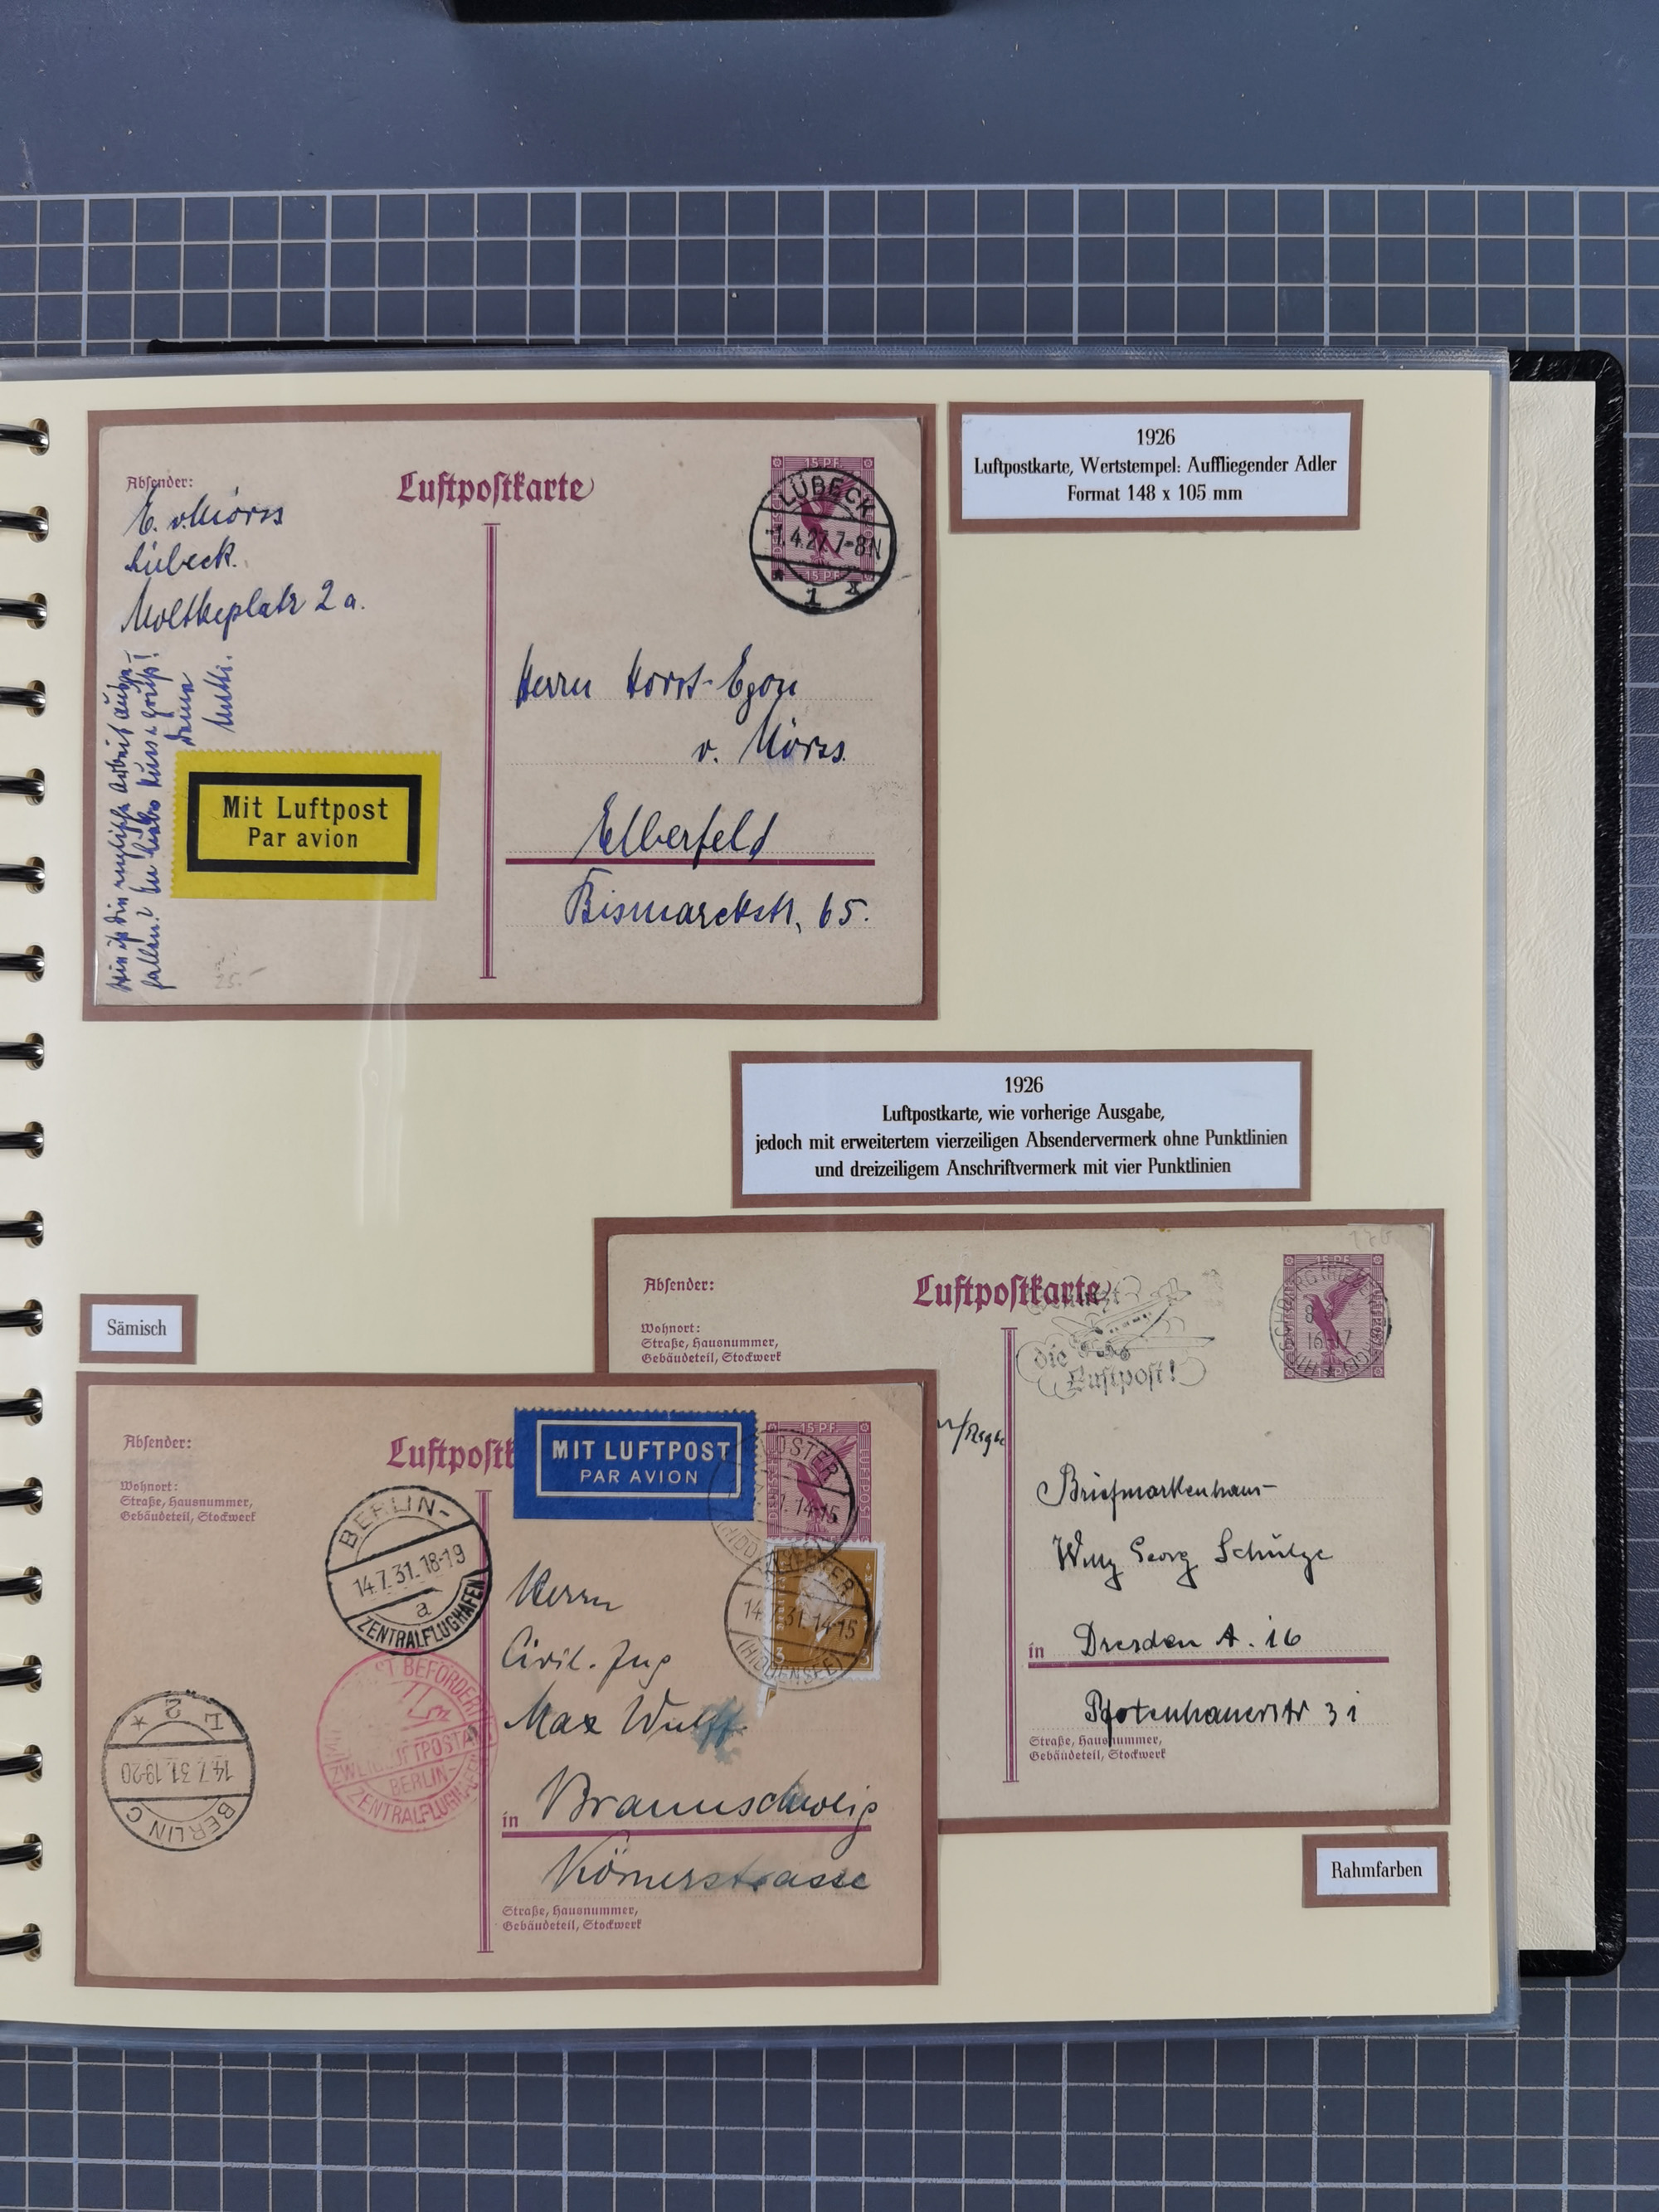 1926
Luftpostkarte, Wertstempel: Auffliegender Adler
Format 148 x 105 mm
Absender:
Luftpostkarte
15 PF
LÜBECK
-1.4.27.7-8N
15 PF
* 1 x
E. v. Mörss
Lübeck.
Moltkeplatz 2a.
Mit Luftpost
Par avion
Herrn Horst-Egon
v. Mörss.
Elberfeld
Bismarckstr. 65.
25.-
1926
Luftpostkarte, wie vorherige Ausgabe,
jedoch mit erweitertem vierzeiligen Absendervermerk ohne Punktlinien
und dreizeiligem Anschriftvermerk mit vier Punktlinien
Absender:
Luftpostkarte
15 PF
Wohnort:
Straße, Hausnummer,
Gebäudeteil, Stockwerk
die
Luftpost!
16-17
Briefmarkenhaus
Willy Georg Schulze
in Dresden A. 16
Pfotenhauerstr 31
Straße, Hausnummer,
Gebäudeteil, Stockwerk
Rahmfarben
Sämisch
Absender:
Luftpostk
MIT LUFTPOST
PAR AVION
15 PF
LUFTPOST
Wohnort:
Straße, Hausnummer,
Gebäudeteil, Stockwerk
BERLIN-
14.7.31.18-19
a
ZENTRALFLUGHAFEN
14-15
14.7.31.14-15
(HIDDENSEE)
3
BERLIN C
14.7.31.19-20
* 2
ST BEFÖRDER
ZWEIGLUFTPOSTA
BERLIN-
ZENTRALFLUGHAFEN
Herrn
Civil. Ing
Max Wulff.
in Braunschweig
Körnerstrasse
Straße, Hausnummer,
Gebäudeteil, Stockwerk